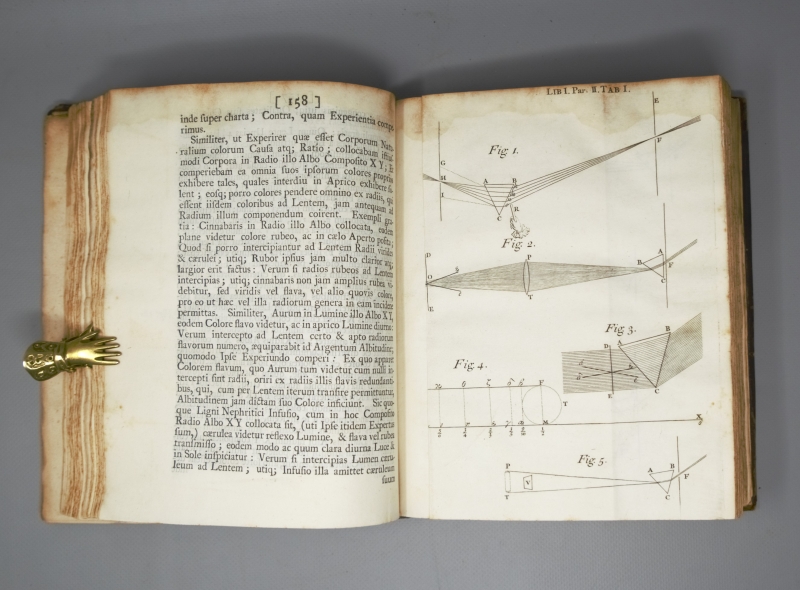 [ 158 ]
inde super charta; Contra, quam Experientia
rimus.
Similiter, ut Experirer quæ esset Corporum Natu-
ralium colorum Causa atq; Ratio; collocabam
modi Corpora in Radio illo Albo Composito X Y; &
comperiebam ea omnia suos ipsorum colores proprios
exhibere tales, quales interdiu in Aprico exhibere so-
lent; eosq; porro colores pendere omnino ex radiis, qui
essent iisdem coloribus ad Lentem, jam antequam ad
Radium illum componendum coirent. Exempli gra-
tia: Cinnabaris in Radio illo Albo collocata, eodem
plane videtur colore rubeo, ac in cælo Aperto posita;
Quod si porro intercipiantur ad Lentem Radii virides
& cærulei; utiq; Rubor ipsius jam multo clarior atq;
largior erit factus: Verum si radios rubeos ad Lentem
intercipias; utiq; cinnabaris non jam amplius rubea vi-
debitur, sed viridis vel flava, vel alio quovis colore,
pro eo ut hæc vel illa radiorum genera in eam incidere
permittas. Similiter, Aurum in Lumine illo Albo X Y,
eodem Colore flavo videtur, ac in aprico Lumine diurno:
Verum intercepto ad Lentem certo & apto radiorum
flavorum numero, æquiparabit id Argentum Albitudine;
quomodo Ipse Experiundo comperi: Ex quo apparet
Colorem flavum, quo Aurum tum videtur cum nulli in-
tercepti sint radii, oriri ex radiis illis flavis redundanti-
bus, qui, cum per Lentem iterum transire permittuntur,
Albitudinem jam dictam suo Colore inficiunt. Sic quo-
que Ligni Nephritici Infusio, cum in hoc Composito
Radio Albo XY collocata sit, (uti Ipse itidem Expertus
sum,) cærulea videtur reflexo Lumine, & flava vel rubea
transmisso; eodem modo ac quum clara diurna Luce &
in Sole inspiciatur: Verum si intercipias Lumen cæru-
leum ad Lentem; utiq; Infusio illa amittet cæruleum
suum
LIB I. Par. II. TAB I.
Fig. 1.
E
F
G
H
I
A
B
C
R
Fig. 2.
D
O
E
P
T
A
B
C
F
Fig. 3.
D
A
B
E
C
T
Fig. 4.
F
M
X
Fig. 5.
P
T
V
A
B
C
F